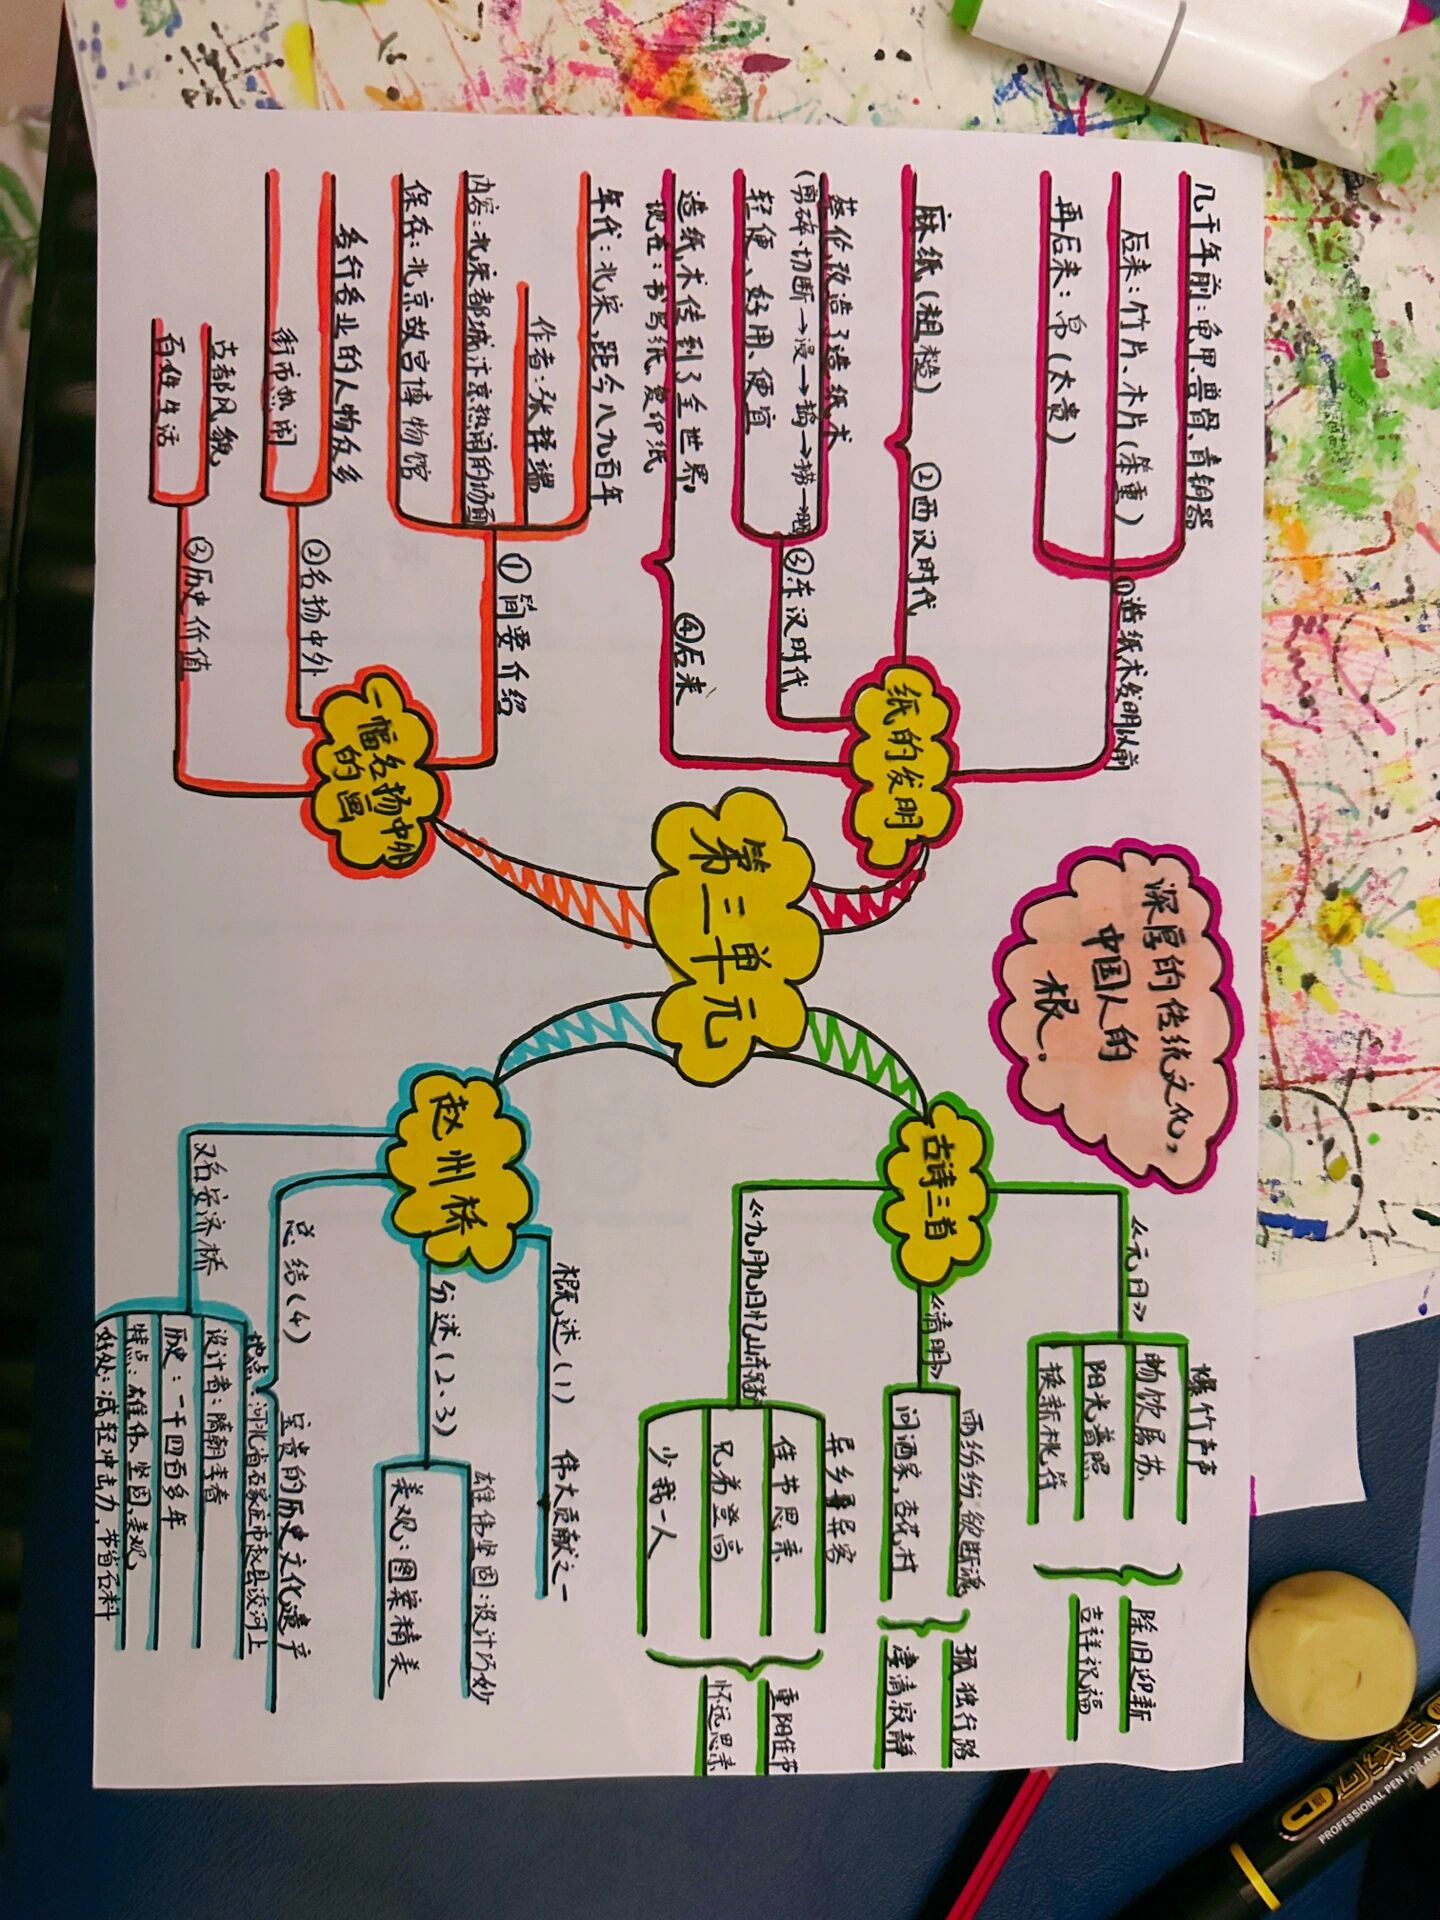 深厚的传统文化，
中国人的
根。
第三单元
纸的发明
①造纸术发明以前
几千年前：龟甲、兽骨、青铜器
后来：竹片、木片（笨重）
再后来：帛（太贵）
②西汉时代
麻纸（粗糙）
③东汉时代
蔡伦改造了造纸术
（剪碎、切断→浸→捣→捞→晒
轻便、好用、便宜
④后来
造纸术传到了全世界
现在：书写纸、复印纸
一幅名扬中外
的画
①简要介绍
年代：北宋，距今八九百年
作者：张择端
内容：北宋都城汴京热闹的场面
保存：北京故宫博物馆
②名扬中外
各行各业的人物众多
街市热闹
③历史价值
古都风貌
百姓生活
古诗三首
《元日》
爆竹声声
畅饮屠苏
阳光普照
换新桃符
除旧迎新
吉祥祝福
《清明》
雨纷纷、欲断魂
问酒家，杏花村
孤独行路
凄清寂静
《九月九日忆山东兄弟》
异乡异客
佳节思亲
兄弟登高
少我一人
重阳佳节
怀远思亲
赵州桥
概述（1）
伟大贡献之一
分述（2、3）
雄伟坚固：设计巧妙
美观：图案精美
总结（4）
宝贵的历史文化遗产
又名安济桥
地点：河北省石家庄市赵县洨河上
设计者：隋朝李春
历史：一千四百多年
特点：雄伟、坚固、美观，
好处：减轻冲击力，节省石料
勾线笔
PROFESSIONAL PEN FOR ART